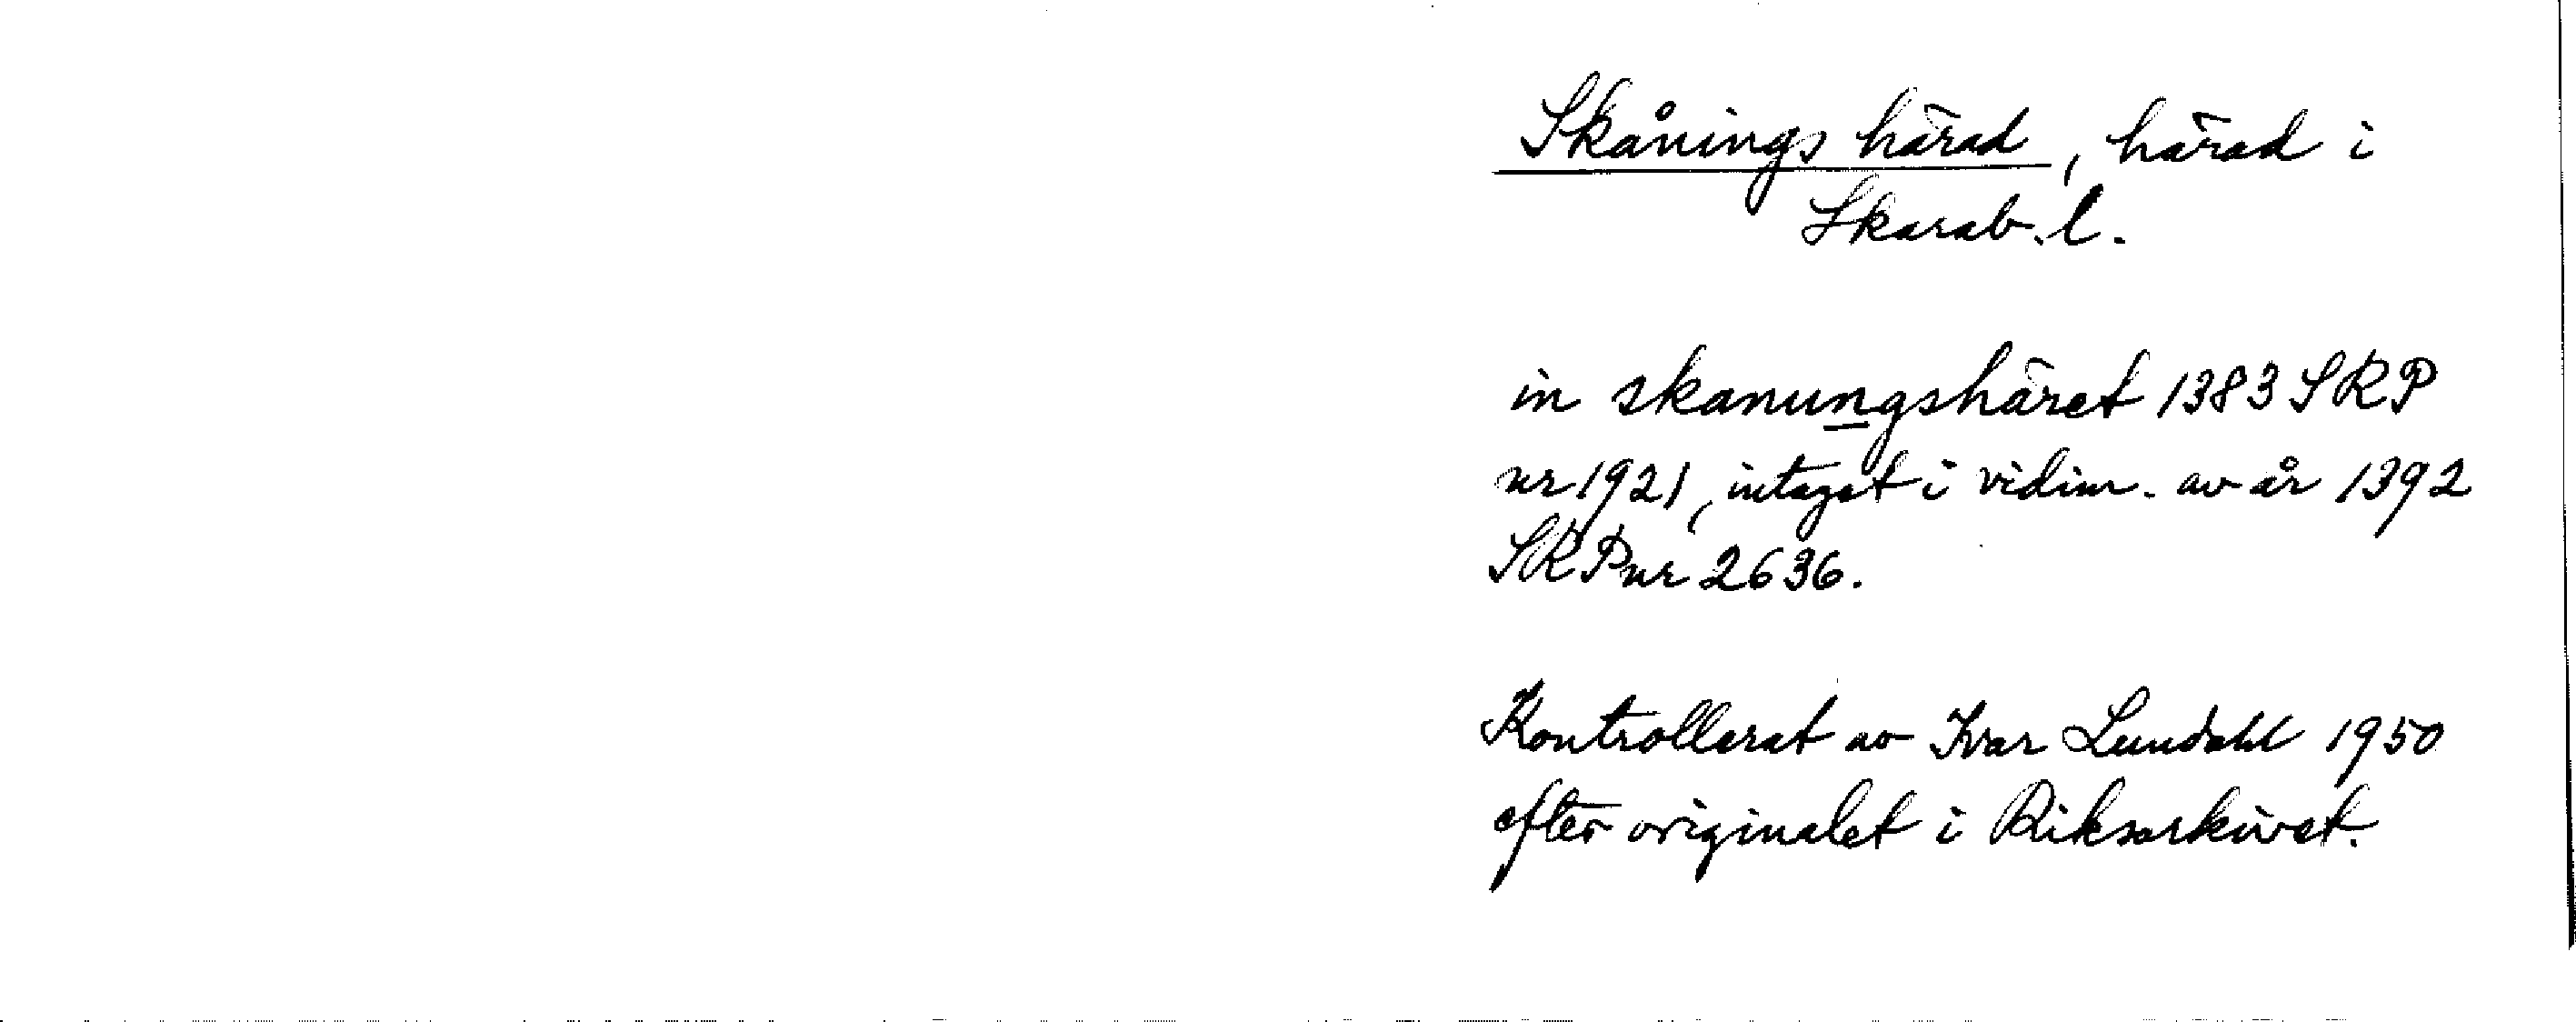 Skånings härad, härad i
Skarab. l.
in skanungshäret 1383 SRP
nr 1921, intaget i vidim. av år 1392
SRP nr 2636.
Kontrollerat av Ivar Lundahl 1950
efter originalet i Riksarkivet.